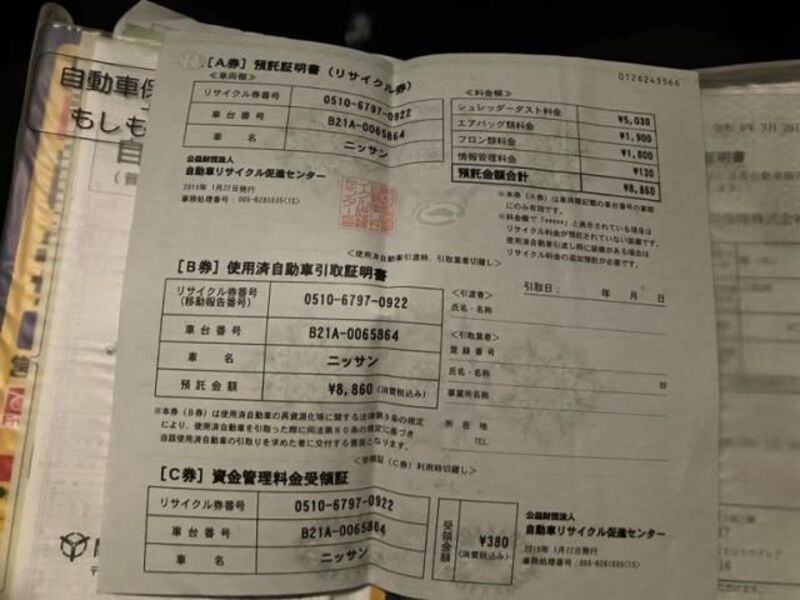 0126243566
[A券] 預託証明書 (リサイクル券)
<車両欄>
リサイクル券番号 0510-6797-0922
車台番号 B21A-0065864
車名 ニッサン
<料金欄>
シュレッダーダスト料金 ¥5,030
エアバッグ類料金 ¥1,900
フロン類料金 ¥1,800
情報管理料金 ¥130
預託金額合計 ¥8,860
公益財団法人
自動車リサイクル促進センター
2015年 1月22日発行
※本券(A券)は車両欄記載の車台番号の車両
にのみ有効です。
※料金欄で「*****」と表示されている場合は
リサイクル料金が預託されていない装備です。
使用済自動車引渡し時に装備がある場合は
リサイクル料金の追加預託が必要です。
<使用済自動車引渡時、引取業者切離し>
[B券] 使用済自動車引取証明書
リサイクル券番号
(移動報告番号) 0510-6797-0922
車台番号 B21A-0065864
車名 ニッサン
預託金額 ¥8,860 (消費税込み)
引取日: 年 月 日
<引渡者>
氏名・名称
<引取業者>
登録番号
氏名・名称 印
事業所名称
所在地
TEL.
※本券(B券)は使用済自動車の再資源化等に関する法律第9条の規定
により、使用済自動車を引取った際に同法第80条の規定に基づき
当該使用済自動車の引取りを求めた者に交付する書面となります。
<受領証(C券)利用時切離し>
[C券] 資金管理料金受領証
リサイクル券番号 0510-6797-0922
車台番号 B21A-0065864
車名 ニッサン
受領金額 ¥380
(消費税込み)
公益財団法人
自動車リサイクル促進センター
2015年 1月22日発行
自動車保
もしも